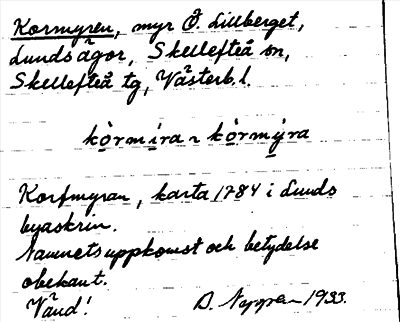 Kormyren, myr Ö. Lillberget,
Lundsågor, Skellefteå sn,
Skellefteå tg, Västerb. l.
kòrmira ~ kòrmýra
Korfmyran, karta 1784 i Lunds
byaskrin.
Namnets uppkomst och betydelse
obekant.
Vänd! D. 1933.